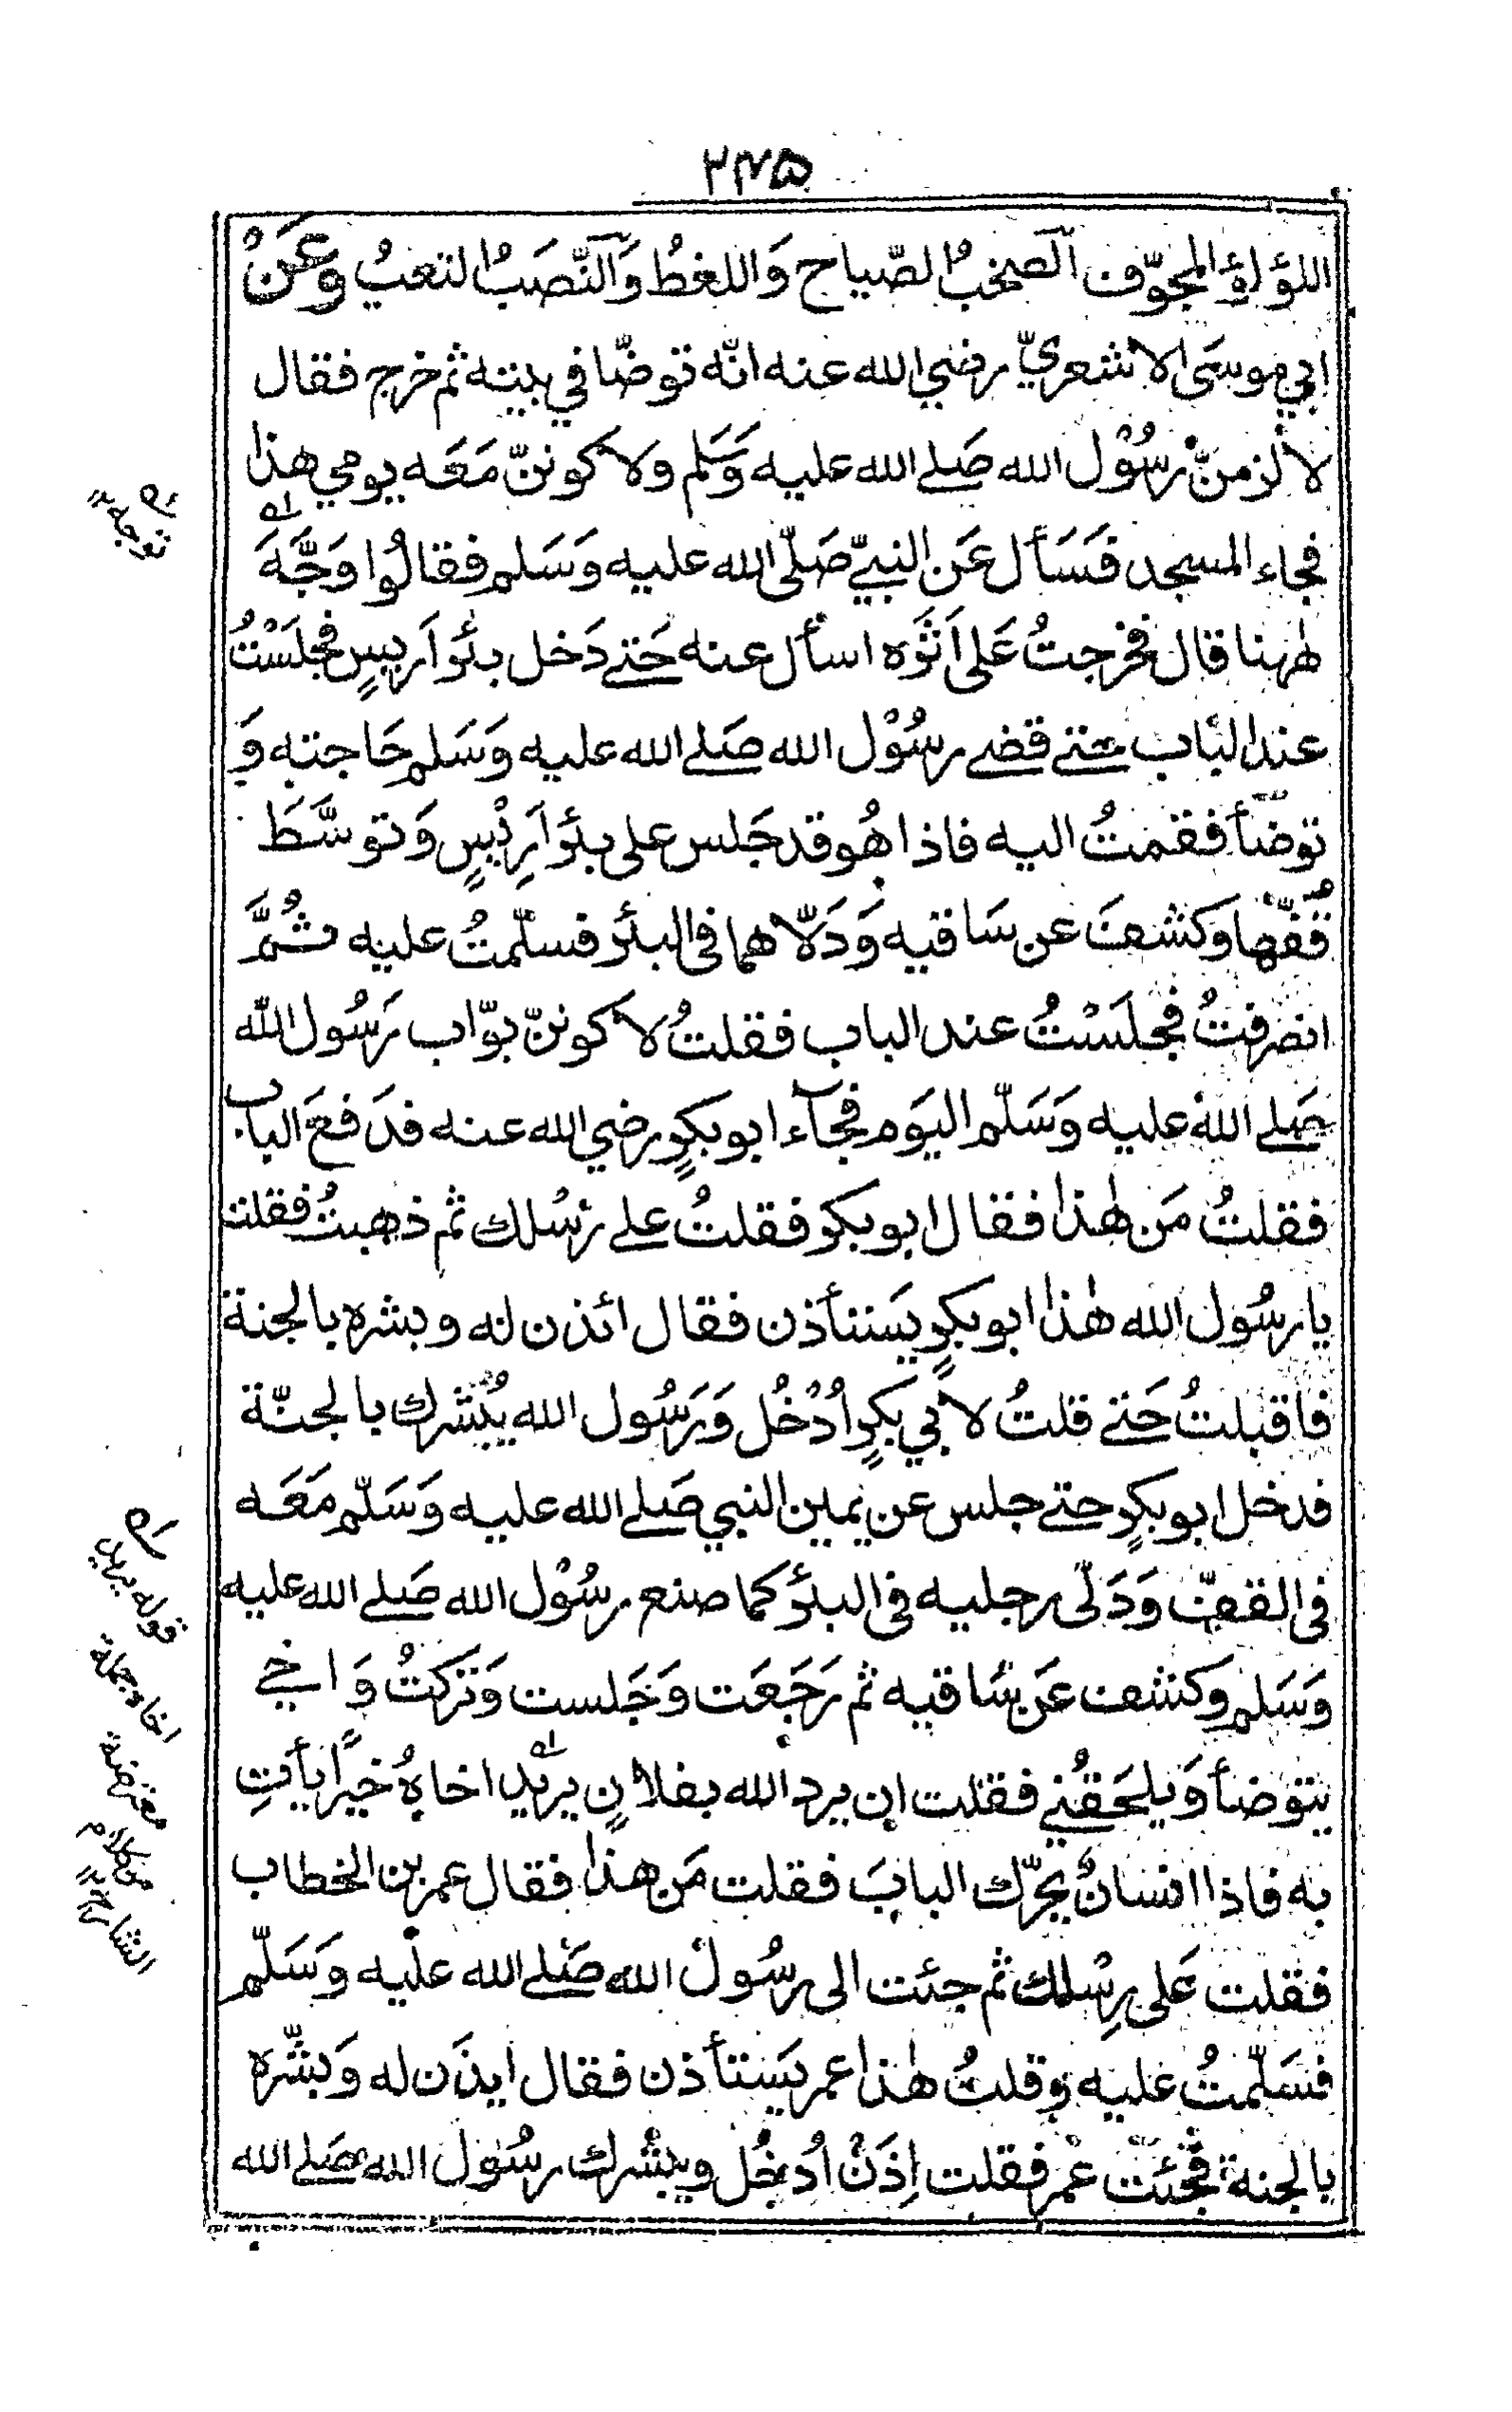 ٢٢٥
اللؤلؤ المجوّف الصخبُ الصّياح وَاللغطُ وَالنّصَبُ التعبُ وعَنْ
ابي موسَى الاشعريّ رضي الله عنه انّه توضّا في بيته ثم خرج فقال
لألزمنّ رسُوْل الله صَلے الله عليه وَسَلم ولاكوننّ مَعَه يومي هذا
فجاء المسجد فَسَأل عَن النبيّ صَلّى الله عليه وَسَلم فقالُوا وَجَّهَ
ههنا قال فخرجتُ عَلى اَثَره اسأل عنه حَتے دَخل بئرَ اَريسٍ فجلَسْتُ
عند الباب حتے قضے رسُوْل الله صَلے الله عليه وَسَلم حَاجته وَ
توضّأ فقمتُ اليه فاذا هُو قد جَلس على بئر اَرِيْسٍ وَتوسَّطَ
قُفّها وكشفَ عن سَاقيه وَدَلّاهما فى البئر فسلّمتُ عليه ثُمَّ
انصرفتُ فجلَسْتُ عند الباب فقلتُ لاكوننّ بوّاب رَسُول الله
صَلے الله عليه وَسَلّم اليَوم فجآء ابو بكرٍ رضي الله عنه فدَفعَ الباب
فقلتُ مَن هٰذا فقال ابو بكر فقلتُ علے رَسُلك ثم ذهبتُ فقلت
يا رسُول الله هٰذا ابو بكرٍ يَستأذن فقال ائذن له وبشره بالجنة
فاقبلتُ حَتے قلتُ لابي بكرٍ اُدْخُل وَرَسُول الله يُبُشرك بالجنّة
فدخل ابو بكرٍ حتے جلس عن يمين النبي صَلے الله عليه وَسَلّم مَعَه
فى القفّ وَدَلّى رجليه فى البئر كما صنع رسُوْل الله صَلے الله عليه
وَسَلم وكشف عَن سَاقيه ثم رَجَعَت وَجَلست وَتركتُ وَاخي
يتوضأ وَيلحَقُني فقلت ان يرد الله بفلانٍ يريد اخاهُ خيرًا يأتِ
به فاذا انسانٌ يحرّك البابَ فقلت مَن هذا فقال عمر بن الخطاب
فقلت عَلى رِسْلك ثم جئت الى رسُول الله صَلے الله عليه وَسَلّم
فسَلّمتُ عليه وقلتُ هٰذا عمر يَستأذن فقال ايذَن له وَبشّره
بالجنة فجئت عُمر فقلت اِذَنْ اُدخُل ويبشرك رسُول الله صَلے الله
له
توجه ١٢
له
قوله يريد
اخاه جملة
معترضة
من كلام
الشارح ١٢